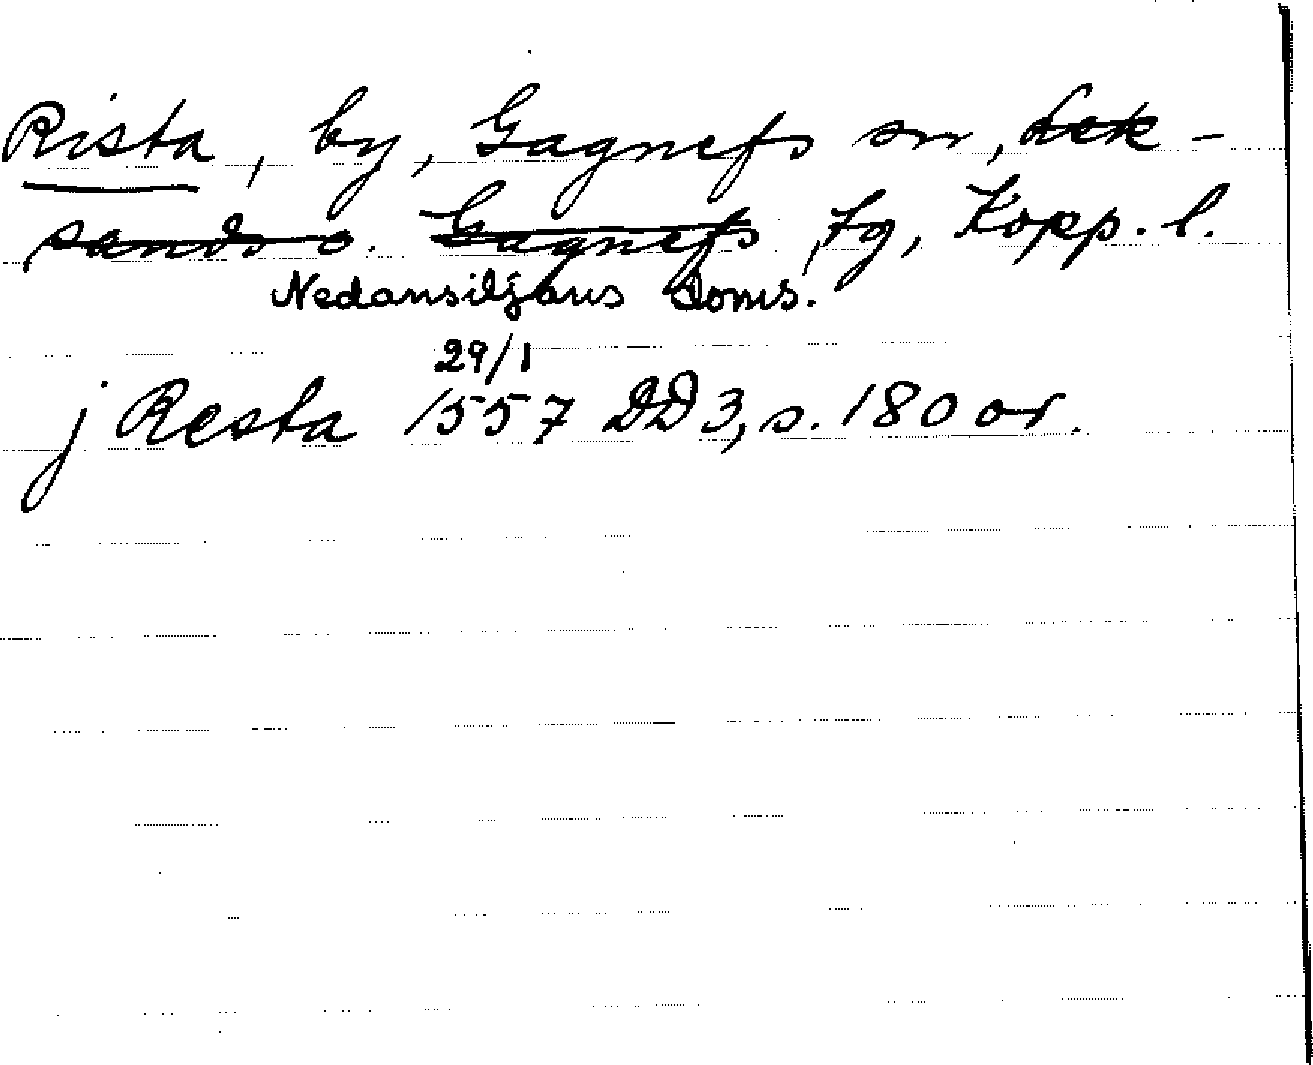 Rista, by, Gagnefs sn, Lek-
sands o. Gagnefs tg, Kopp. l.
Nedansiljans Doms.
29/1
j Resta 1557 DD 3, s. 180 or.